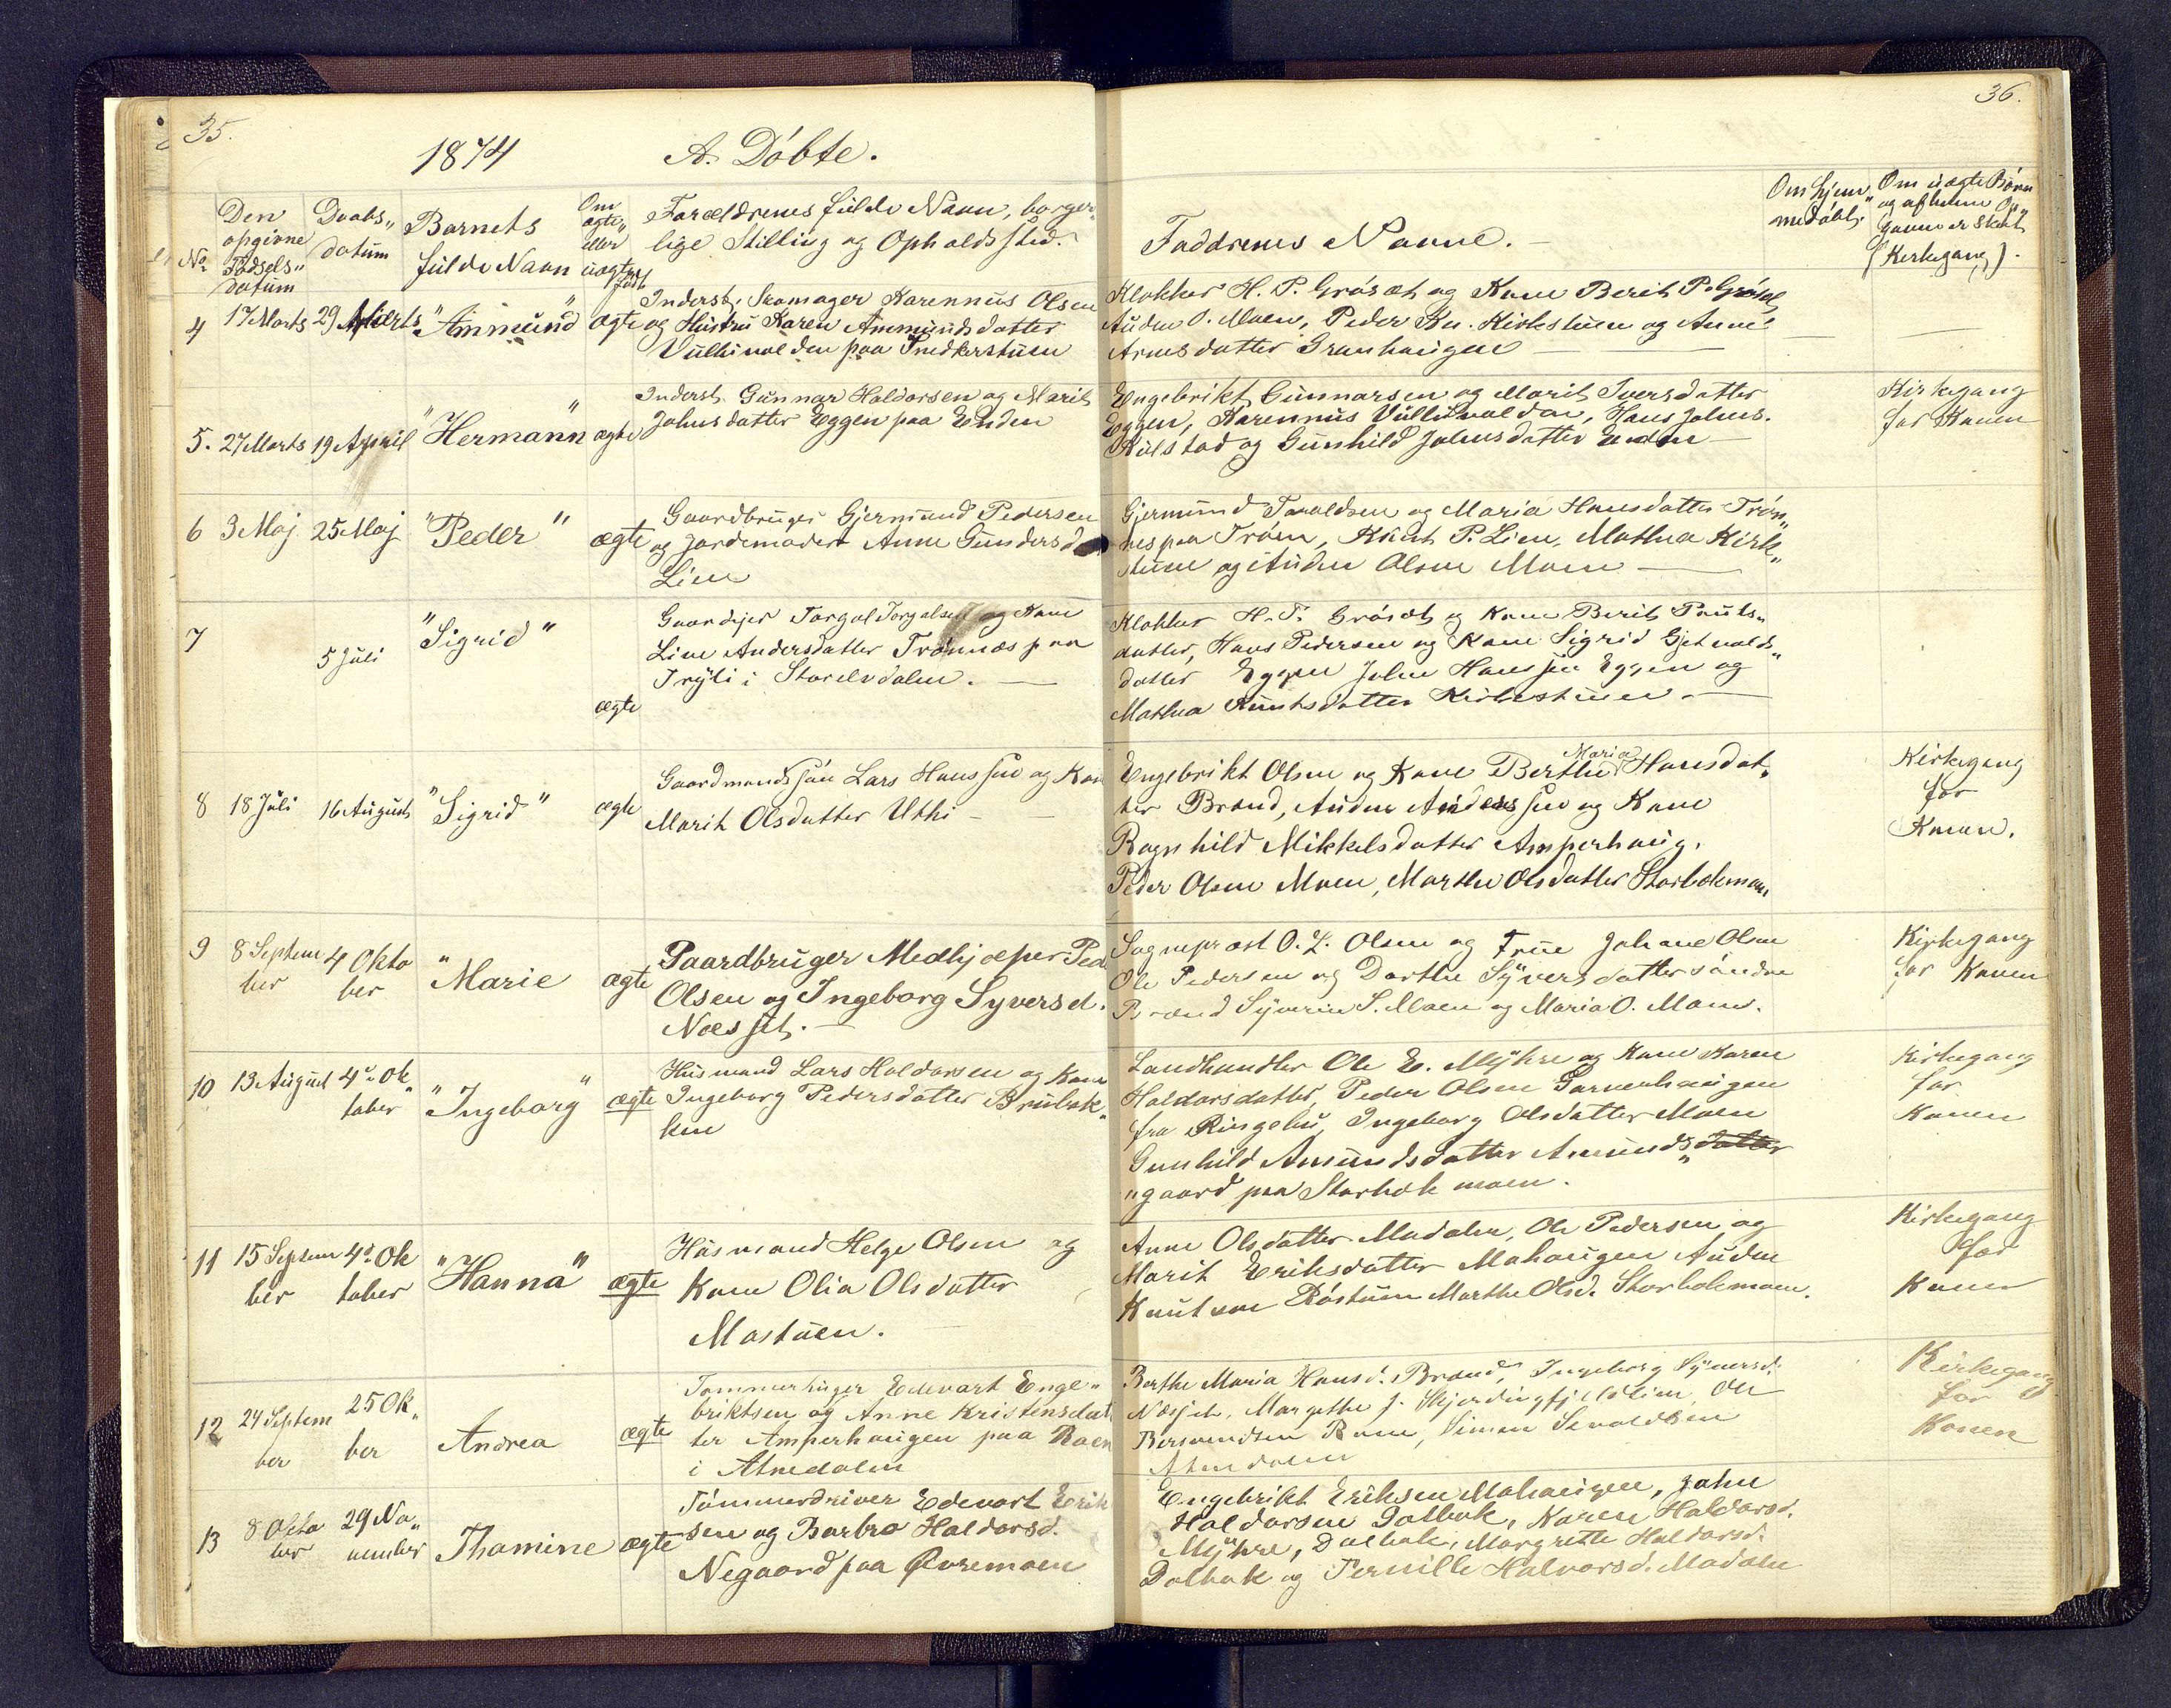 35.
1874 A. Döbte.
36.
No
Den opgivne Födsels" datum
Daabs" datum
Barnets fulde Navn
Om ægte" eller uægte født
Forældrenes fulde Navn, borger" lige Stilling og Opholdssted.
Faddrenes Navne.
Om hjem" medöbt.
Om uægte Börn
(Kirkegang).
4 17 Marts 29 Marts "Ammund" ægte
Inderst. Skomager Karennus Olsen
og Hustru Karen Ammundsdatter
Vullinvolden paa Snedkerstuen
Klokker H. P. Gråsæt og Kone Berit P. Gråset
Auden O. Moen, Peder Kn. Kirkestuen og Anne
Arnesdatter Granhaugen
5. 27 Marts 19 April "Hermann" ægte
Inderst. Gunnar Haldorsen og Marit
Johnsdatter Eggen paa Enden
Engebrikt Gunnarsen og Marit Iversdatter
Eggen, Karennus Vullinvolden, Hans Johns.
Kulstad og Gunhild Johnsdatter Enden
Kirkegang
for Konen
6 3 Maj 25 Maj "Peder" ægte
Gaardbruger Gjermund Pedersen
og Jordemoder Anne Gundersd
Lien
Gjermund Taraldsen og Maria Hansdatter Trön"
nes paa Tröen, Knut P. Lien, Mathea Kirk"
stuen og Auden Olsen Moen
7 5 Juli "Sigrid" ægte
Gaardejer Torgal Torgalsen og Kone
Line Andersdatter Trönnæs paa
Tryli i Storelvdalen.
Klokker H. P. Gråset og Kone Berit Pauls"
datter, Hans Pedersen og Kone Sigrid Gjetvolds"
datter Eggen John Hanssen Eggen og
Mathea Knutsdatter Kirkestuen
8 18 Juli 16 August "Sigrid" ægte
Gaardmandssön Lars Hanssen og Kon
Marit Olsdatter Uthi
Engebrikt Olsen og Kone Berthe Maria Hansdat"
ter Brænd, Auden Anderssen og Kone
Ragnhild Mikkelsdatter Amperhaug,
Peder Olsen Moen, Marthe Olsdatter Storbekmoen
Kirkegang
for
Konen.
9 8 Septem ber 4 Okto ber "Marie ægte
Gaardbruger Medhjælper Ped
Olsen og Ingeborg Syversd.
Næsset.
Sognepræst O. Z. Olsen og Frue Johane Olsen
Ole Pedersen og Dorthe Syversdatter söndre
Brænd Syverin S. Moen og Maria O. Moen.
Kirkegang
for Konen
10 13 August 4de Ok" tober "Ingeborg" ægte
Husmand Lars Haldorsen og Kone
Ingeborg Pedersdatter Brubak"
ken
Landhandler Ole E. Myhre og Kone Karen
Haldorsdatter, Peder Olsen Garverhaugen
fra Ringebu, Ingeborg Olsdatter Moen
Gunhild Amundsdatter Amunds" datter
"gaard paa Storbekmoen.
Kirkegang
for
Konen
11 15 Septem ber 4de Ok tober "Hanna" ægte
Husmand Helge Olsen og
Kone Olia Olsdatter
Mostuen.
Anne Olsdatter Modalen, Ole Pedersen og
Marit Eriksdatter Mohaugen Auden
Knutsen Röstuen Marthe Olsd. Storbekmoen.
Kirkegang
for
Konen
12 24 Septem ber 25 Ok" ber Andrea ægte
Tommerhuger Edevart Enge"
briktsen og Anne Kristensdat
ter Amperhaugen paa Roen
i Atnedalen
Berthe Maria Hansd. Brænd, Ingeborg Syversd.
Næsset, Margethe J. Ole
Bersvendsen Roen, Simen
Atnedalen
Kirkegang
for
Konen
13 8 Octo ber 29 No" vember Thomine ægte
Tömmerdriver Edevart Erik
sen og Barbro Haldorsd.
Negaard paa Øvremoen
Engebrikt Eriksen Mohaugen, John
Haldorsen Dalbak, Karen Haldorsd.
Myhre, Dalbak, Margrethe Haldorsd.
Dalbak og Pernille Halvorsd. Modalen